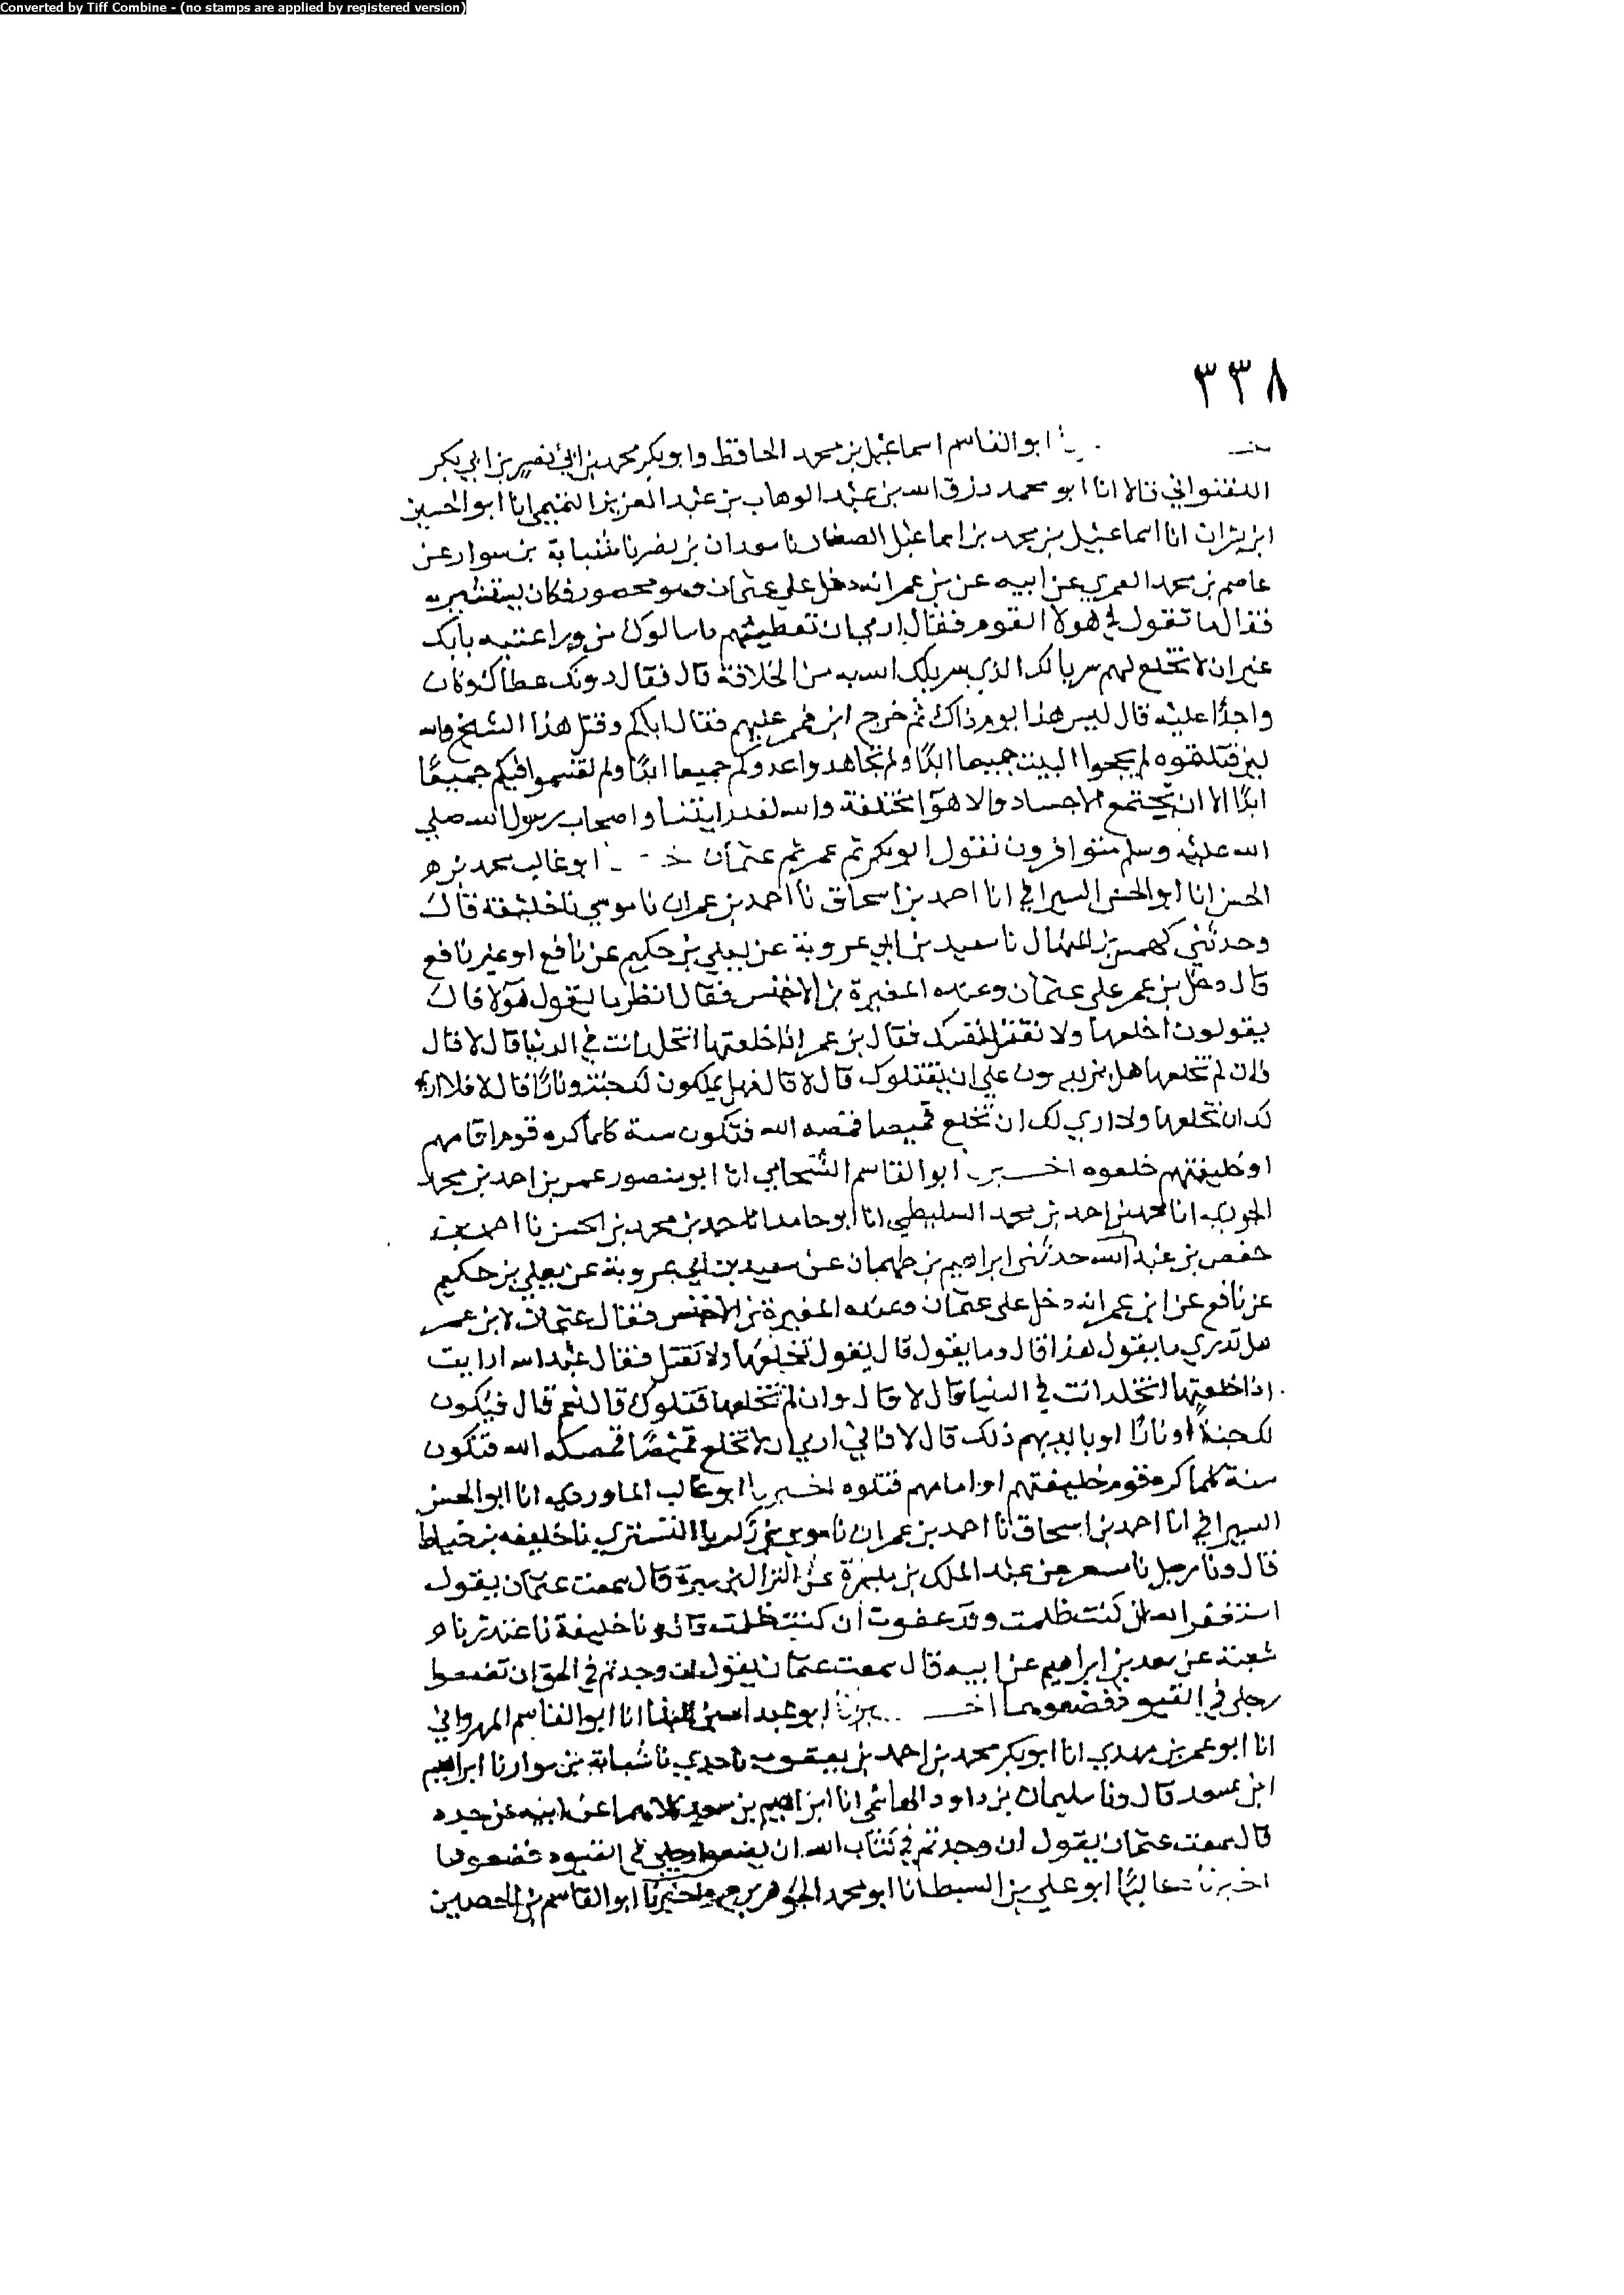 Converted by Tiff Combine - (no stamps are applied by registered version)
٣٣٨
ابو القاسم اسماعيل بن محمد الحافظ وابو بكر محمد بن ابي نصر بن ابي بكر
اللفتواني قالا انا ابو محمد رزق الله بن عبد الوهاب بن عبد العزيز التميمي انا ابو الحسين
ابن بشران انا اسماعيل بن محمد بن اسماعيل الصفار نا سعدان بن نصر نا شبابة بن سوار عن
عاصم بن محمد العمري عن ابيه عن بن عمر انه دخل على عثمان وهو محصور فكان يستشيره
فقال ما تقول في هولا القوم فقال ارى ان تعطيهم ما سالوك من ورا عتبة بابك
غير ان لا تخلع لهم سربالك الذي سربلك الله به من الخلافة قال فقال دونك عطاك وكان
واجدا عليه قال ليس هذا يوم ذاك ثم خرج ابن عمر عليهم فقال اياكم وقتل هذا الشيخ والله
لين قتلتموه لم تحجوا البيت جميعا ابدا ولم تجاهدوا عدوكم جميعا ابدا ولم تقتسموا فيكم جميعا
ابدا الا ان تجتمع الاجساد والاهوا مختلفة والله لقد رايتنا واصحاب رسول الله صلى
الله عليه وسلم متوافرون نقول ابو بكر ثم عمر ثم عثمان ابو غالب محمد بن
الحسن انا ابو الحسن السيرافي انا احمد بن اسحاق نا احمد بن عمران نا موسى نا خليفة قال
وحدثني كهمس بن المنهال نا سعيد بن ابي عروبة عن يعلى بن حكيم عن نافع او غير نافع
قال دخل بن عمر على عثمان وعنده المغيرة بن الاخنس فقال انظر ما يقول هولا قال
يقولون اخلعها ولا تقتل نفسك فقال بن عمر اذا خلعتها امخلد انت في الدنيا قال لا قال
فان لم تخلعها هل يزيدون على ان يقتلوك قال لا قال فهل يملكون لك جنة ونارا قال لا قال فلا ارى
لك ان تخلعها ولا ارى لك ان تخلع قميصا قمصه الله فتكون سنة كلما كره قوم امامهم
او خليفتهم خلعوه اخبرنا ابو القاسم الشحامي انا ابو منصور عمر بن احمد بن محمد
الجوري انا محمد بن احمد بن محمد السليطي انا ابو حامد احمد بن محمد بن الحسن نا احمد بن
حفص بن عبد الله حدثني ابراهيم بن طهمان عن سعيد بن ابي عروبة عن يعلى بن حكيم
عن نافع عن ابن عمر انه دخل على عثمان وعنده المغيرة بن الاخنس فقال عثمان لابن عمر
هل تدري ما يقول هذا قال وما يقول قال يقول تخلعها ولا تقتل فقال عبد الله ارايت
اذا خلعتها اتخلد انت في الدنيا قال لا قال وان لم تخلعها قتلوك قال نعم قال فيكون
لك جنة او نارا او بايديهم ذلك قال لا فاني ارى ان لا تخلع قميصا قمصكه الله فتكون
سنة كلما كره قوم خليفتهم او امامهم قتلوه اخبرنا ابو غالب الماوردي انا ابو الحسن
السيرافي انا احمد بن اسحاق نا احمد بن عمران نا موسى بن زكريا التستري نا خليفه بن خياط
قال ونا رجل نا مسعر عن عبد الملك بن ميسرة عن النزال بن سبرة قال سمعت عثمان يقول
استغفر الله ان كنت ظلمت وقد عفوت ان كنت ظلمت قال ونا خليفة نا غندر نا
شعبة عن سعد بن ابراهيم عن ابيه قال سمعت عثمان يقول ان وجدتم في الحق ان تضعوا
رجلي في القيود فضعوهما ابو عبد الله بن البنا انا ابو القاسم المهرواني
انا ابو عمر بن مهدي انا ابو بكر محمد بن احمد بن يعقوب نا جدي نا شبابة بن سوار نا ابراهيم
ابن سعد قال ونا سليمان بن داود الهاشمي انا ابراهيم بن سعد كلاهما عن ابيه عن جده
قال سمعت عثمان يقول ان وجدتم في كتاب الله ان تضعوا رجلي في القيود فضعوها
اخبرناه عاليا ابو علي بن السبط انا ابو محمد الجوهري ح واخبرنا ابو القاسم بن الحصين